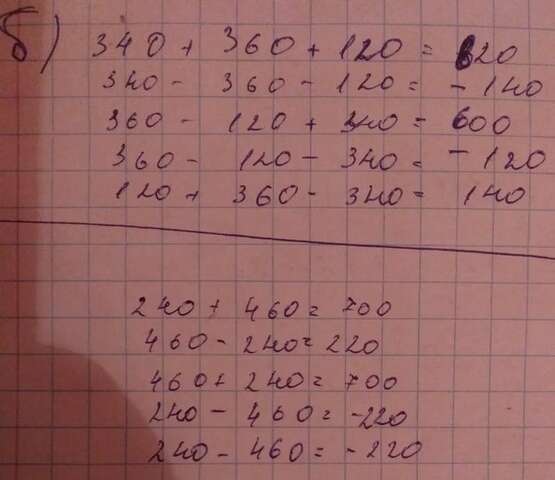 б) 340 + 360 + 120 = 620
340 - 360 - 120 = - 140
360 - 120 + 340 = 600
360 - 120 - 340 = - 120
120 + 360 - 340 = 140
240 + 460 = 700
460 - 240 = 220
460 + 240 = 700
240 - 460 = -220
240 - 460 = -220